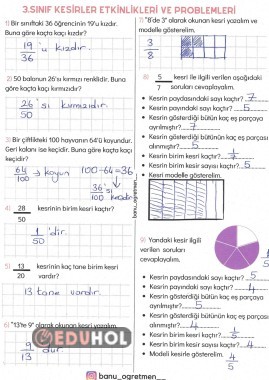 3.SINIF KESİRLER ETKİNLİKLERİ VE PROBLEMLERİ
1) Bir sınıftaki 36 öğrencinin 19'u kızdır.
Buna göre kaçta kaçı kızdır?
19 'u kızdır.
36
2) 50 balonun 26'sı kırmızı renklidir. Buna
göre kaçta kaçı kırmızıdır?
26 'sı kırmızıdır
50
3) Bir çiftlikteki 100 hayvanın 64'ü koyundur.
Geri kalanı ise keçidir. Buna göre kaçta kaçı
keçidir?
64 koyun 100-64=36
100
36 'sı
100 keçidir
4) 28 kesrinin birim kesri kaçtır?
50
1 'dir
50
5) 13 kesrinin kaç tane birim kesri
20 vardır?
13 tane vardır.
6) "13'te 9" olarak okunan kesri yazalım.
9 'dur.
13
7) "8'de 3" olarak okunan kesri yazalım ve
modelle gösterelim.
3
8
8) 5 kesri ile ilgili verilen aşağıdaki
7 soruları cevaplayalım.
• Kesrin paydasındaki sayı kaçtır? 7
• Kesrin payındaki sayı kaçtır? 5
• Kesrin gösterdiği bütün kaç eş parçaya
ayrılmıştır? 7
• Kesrin gösterdiği bütünün kaç eş parçası
alınmıştır? 5
• Kesrin birim kesri kaçtır? 1
7
• Kesrin birim kesir sayısı kaçtır? 5
• Kesri modelle gösterelim.
9) Yandaki kesir ilgili
verilen soruları
cevaplayalım.
• Kesrin paydasındaki sayı kaçtır? 5
• Kesrin payındaki sayı kaçtır? 4
• Kesrin gösterdiği bütün kaç eş parçaya
ayrılmıştır? 5
• Kesrin gösterdiği bütünün kaç eş parçası
alınmıştır? 4
• Kesrin birim kesri kaçtır? 1
5
• Kesrin birim kesir sayısı kaçtır? 4
• Modeli kesirle gösterelim. 4
5
banu_ogretmen__
EDUHOL
banu_ogretmen__